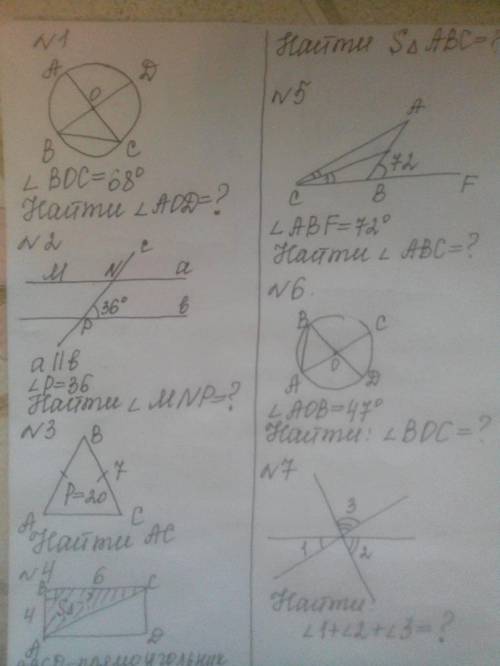 №1
A
D
O
B
C
∠ BOC=68°
Найти ∠AOD=?
№2
c
M
N
a
36°
P
b
a||b
∠P=36
Найти ∠ MNP=?
№3
B
7
P=20
A
C
Найти AC
№4
B
6
C
4
S△
A
D
ABCD-прямоугольник
Найти S△ ABC=?
№5
A
72
C
B
F
∠ABF=72°
Найти ∠ ABC=?
№6
B
C
O
A
D
∠AOB=47°
Найти: ∠BOC=?
№7
3
1
2
Найти:
∠1+∠2+∠3=?